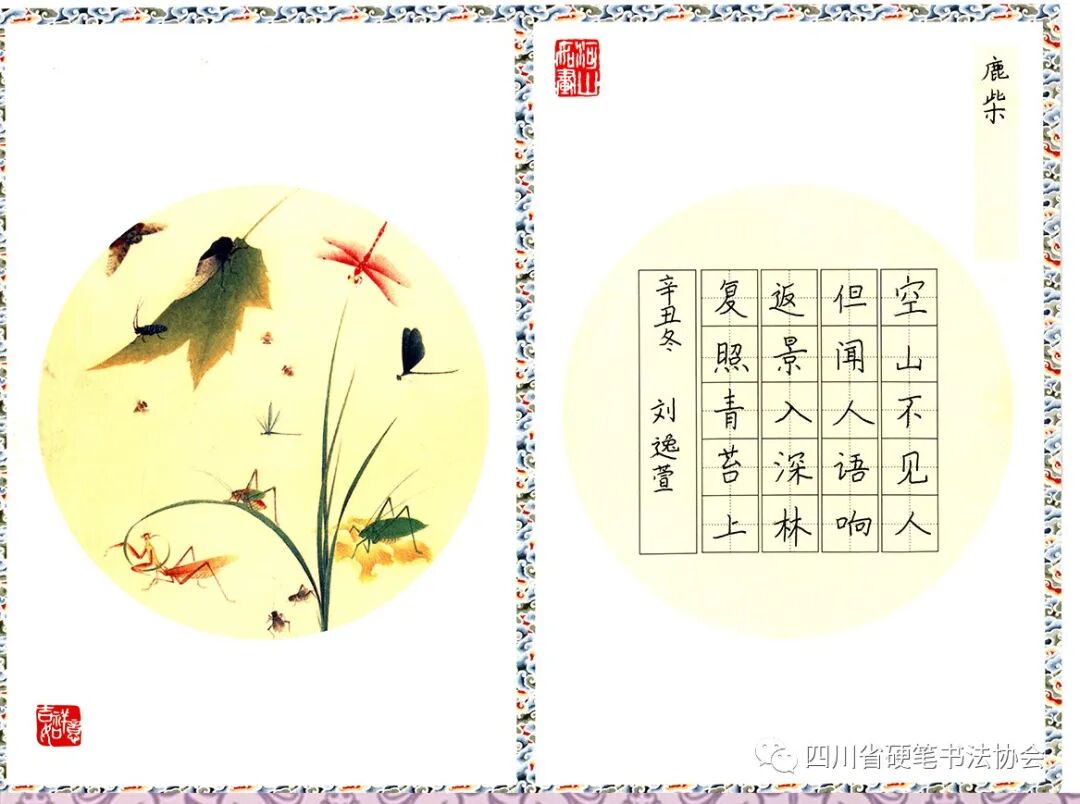 鹿柴
空山不见人
但闻人语响
返景入深林
复照青苔上
辛丑冬 刘逸萱
河山如画
吉祥如意
四川省硬笔书法协会